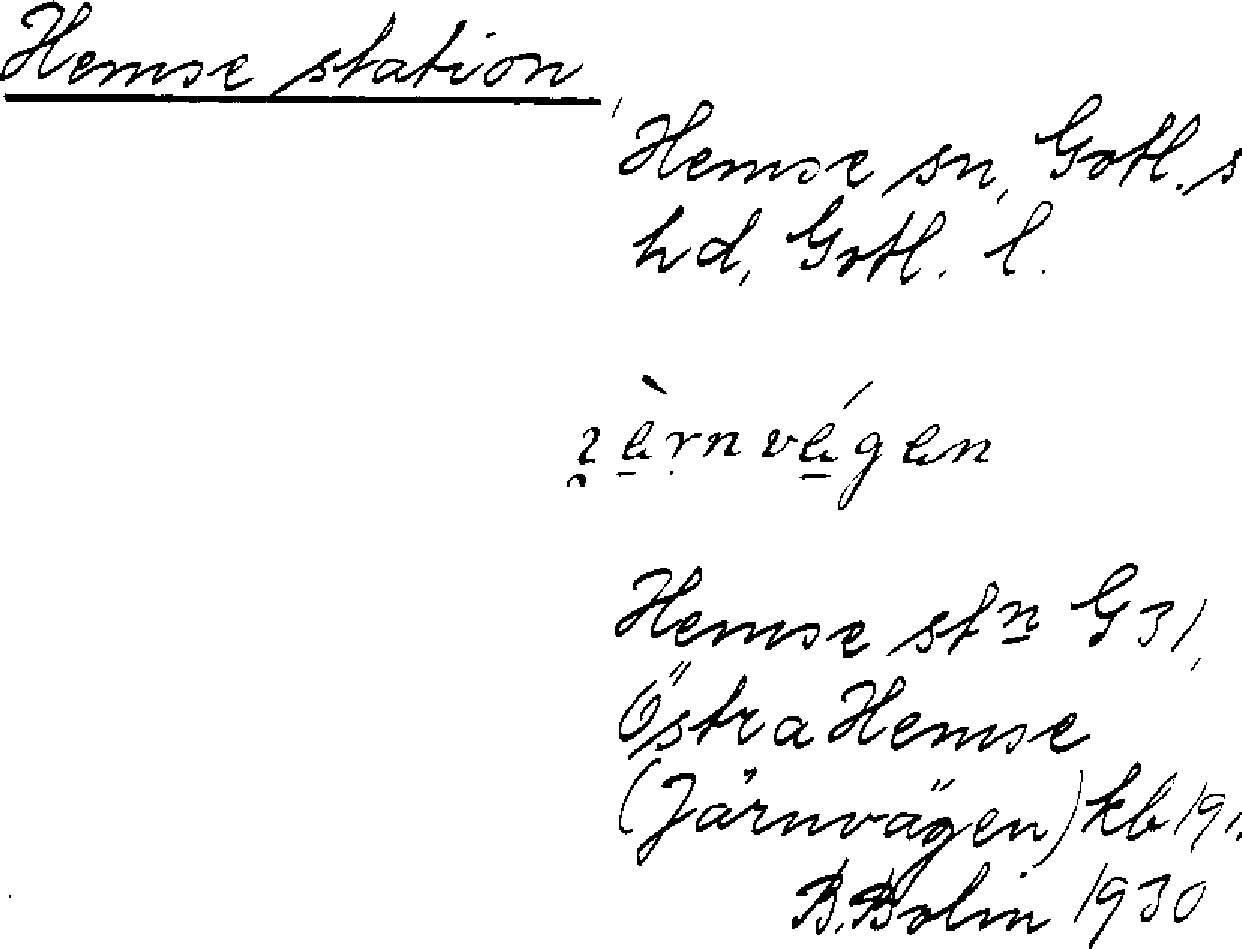 Hemse station,
Hemse sn, Gotl. s
hd, Gotl. l.
Hemse stn G 31,
Östra Hemse
(Järnvägen) kb 191.
B. Bolin 1930